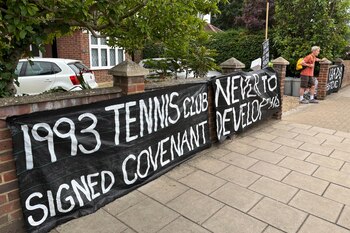 1993 TENNIS CLUB
SIGNED COVENANT
NEVER TO
DEVELOP